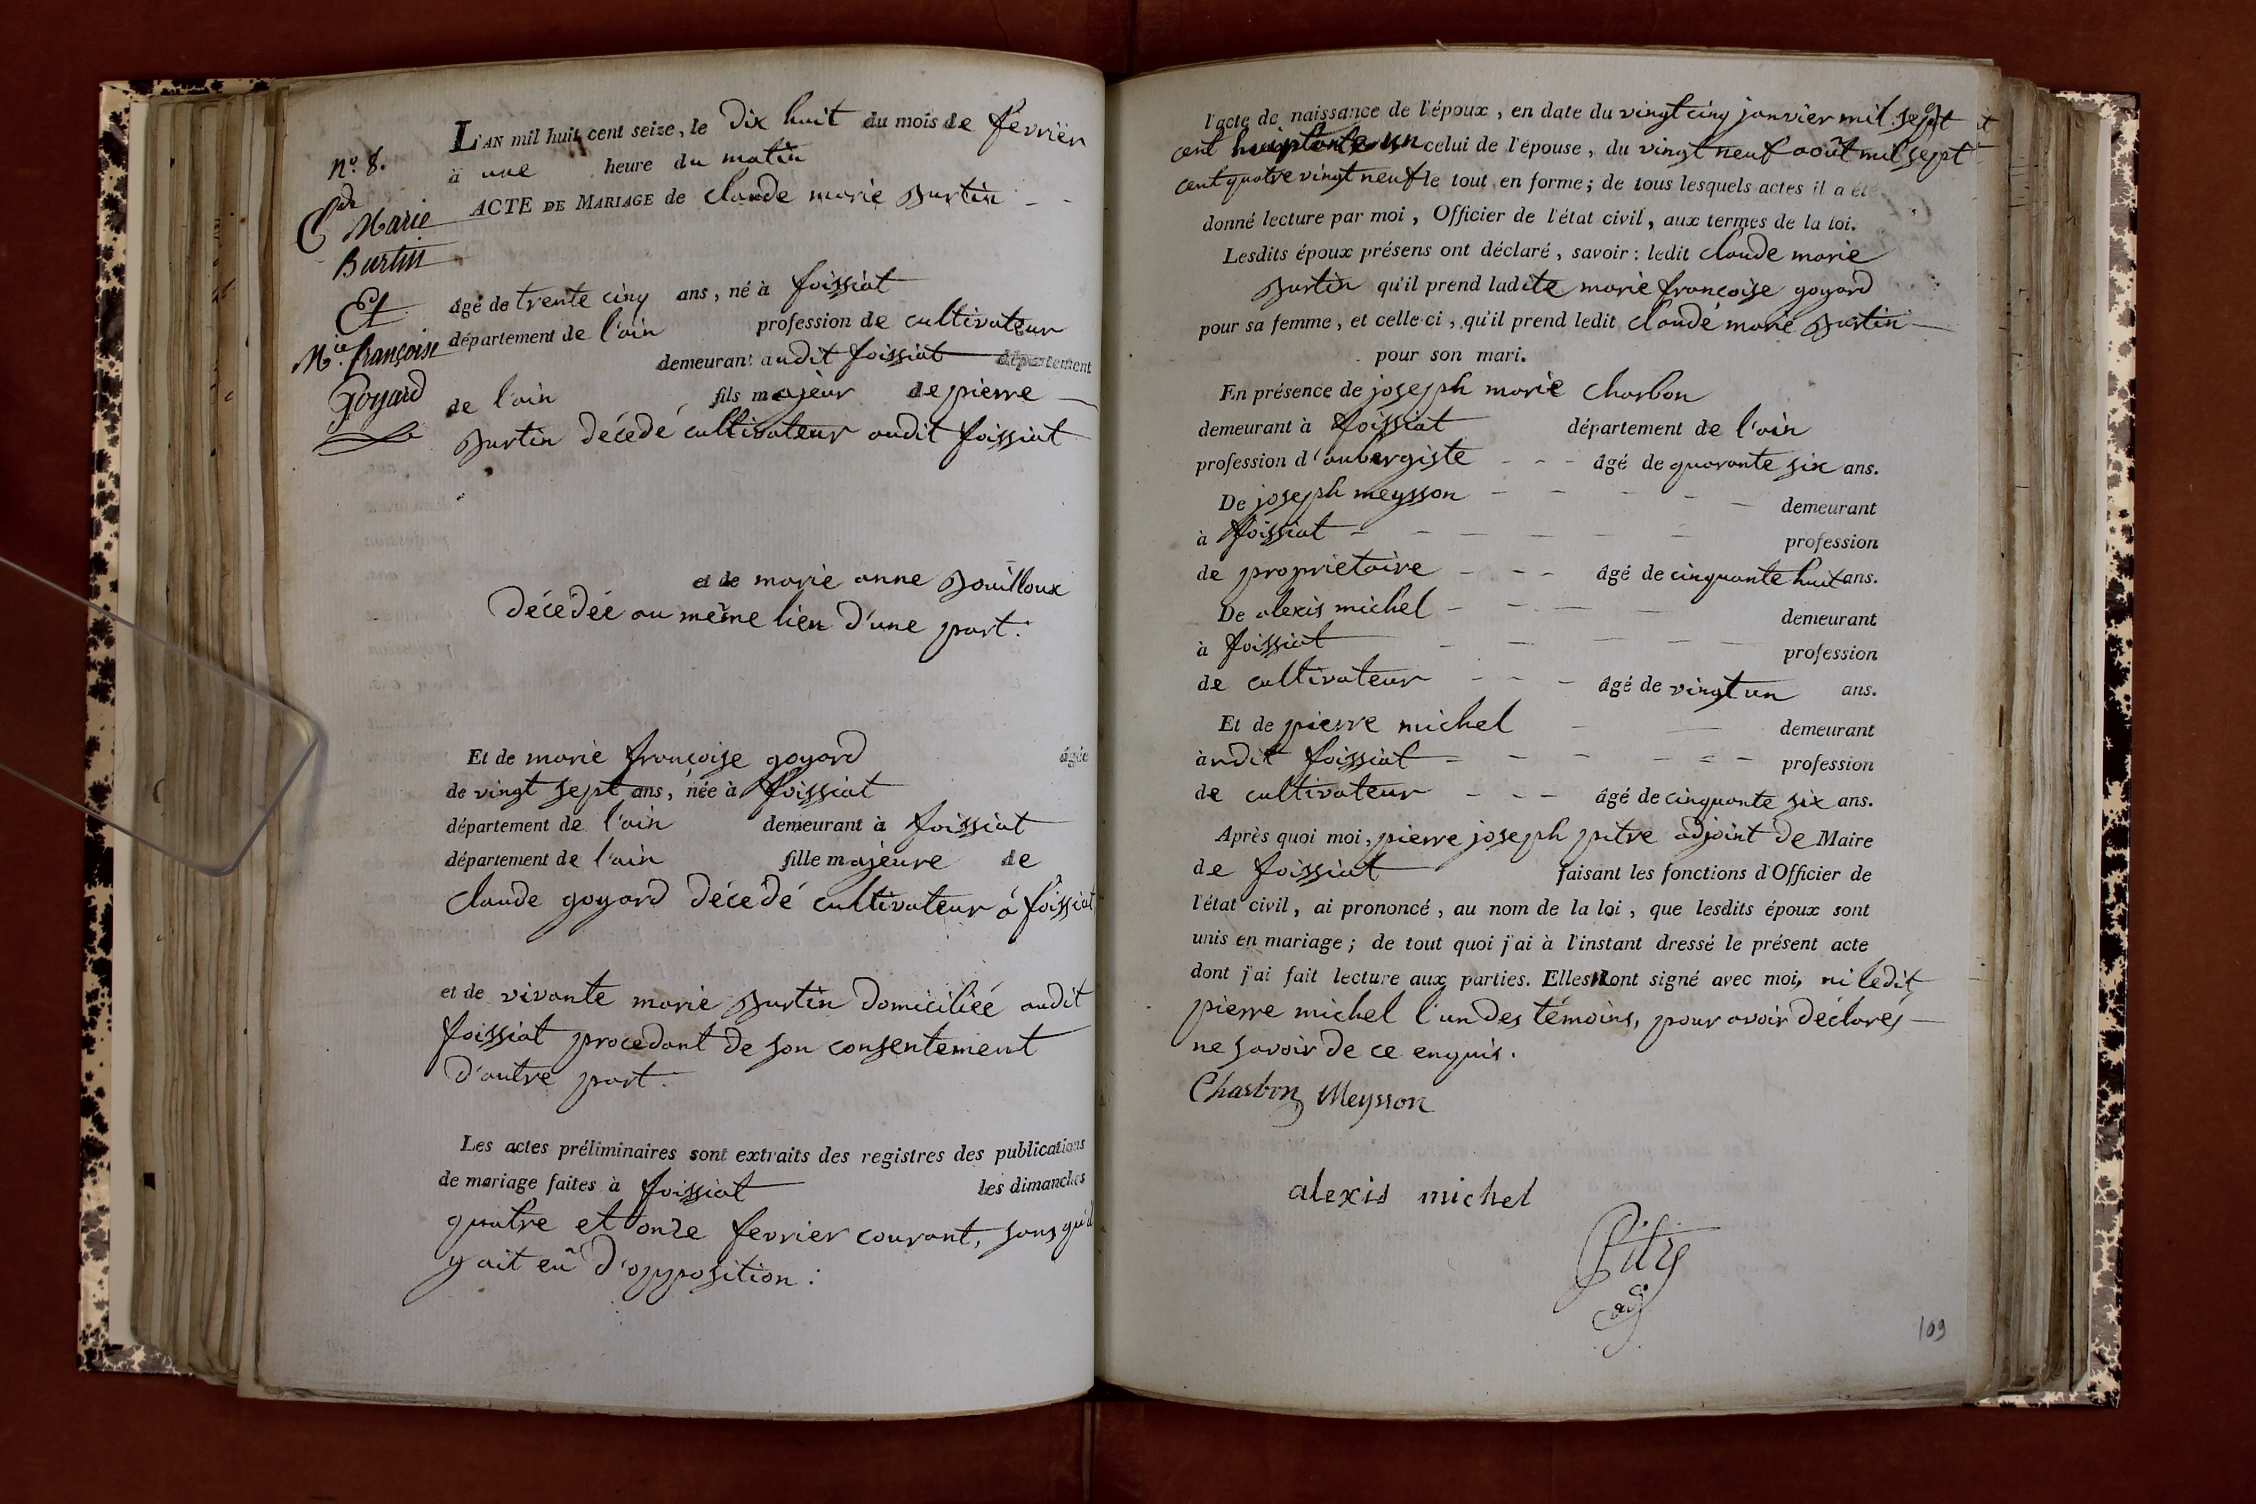 N.º 8.
C.de Marie
Burtin
Et
M.ie françoise
Goyard
L'AN mil huit cent seize, le Dix huit du mois de fevrier
à une heure du matin
ACTE DE MARIAGE de claude marie Burtin
âgé de trente cinq ans, né à foissiat
département de l'ain profession de cultivateur
demeurant audit foissiat département
de l'ain fils majeur de pierre
Burtin décédé cultivateur audit foissiat
et de marie anne Bouilloux
Décédée au même lieu d'une part.
Et de marie françoise goyard âgée
de vingt sept ans, née à foissiat
département de l'ain demeurant à foissiat
département de l'ain fille majeure de
claude goyard décédé cultivateur à foissiat
et de vivante marie Burtin domiciliée audit
foissiat procedant de son consentement
d'autre part.
Les actes préliminaires sont extraits des registres des publications
de mariage faites à foissiat les dimanches
quatre et onze fevrier courant, sans qu'il
y ait eû d'opposition :
l'acte de naissance de l'époux, en date du vingt cinq janvier mil sept
cent un celui de l'épouse, du vingt neuf août mil sept
cent quatre vingt neuf le tout en forme; de tous lesquels actes il a été
donné lecture par moi, Officier de l'état civil, aux termes de la loi.
Lesdits époux présens ont déclaré, savoir : ledit claude marie
Burtin qu'il prend ladite marie françoise goyard
pour sa femme, et celle-ci, qu'il prend ledit claude marie Burtin
pour son mari.
En présence de joseph marie Charbon
demeurant à foissiat département de l'ain
profession d'aubergiste âgé de quarante six ans.
De joseph meysson demeurant
à foissiat profession
de proprietaire âgé de cinquante huit ans.
De alexis michel demeurant
à foissiat profession
de cultivateur âgé de vingt un ans.
Et de pierre michel demeurant
àudit foissiat profession
de cultivateur âgé de cinquante six ans.
Après quoi moi, pierre joseph pitre adjoint de Maire
de foissiat faisant les fonctions d'Officier de
l'état civil, ai prononcé, au nom de la loi, que lesdits époux sont
unis en mariage; de tout quoi j'ai à l'instant dressé le présent acte
dont j'ai fait lecture aux parties. Elles n'ont signé avec moi, ni ledit
pierre michel l'un des témoins, pour avoir déclarés
ne savoir de ce enquis.
Charbon Meysson
alexis michel
Pitre
adj
109